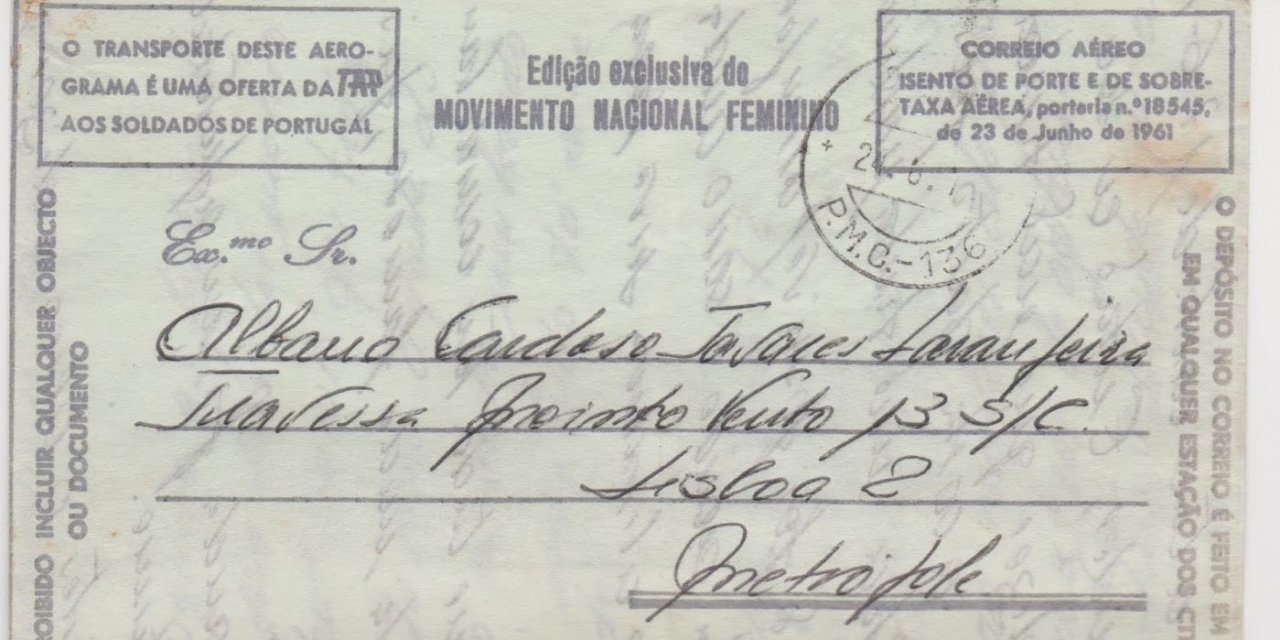 O TRANSPORTE DESTE AERO-
GRAMA É UMA OFERTA DA TAP
AOS SOLDADOS DE PORTUGAL
Edição exclusiva do
MOVIMENTO NACIONAL FEMININO
CORREIO AÉREO
ISENTO DE PORTE E DE SOBRE-
TAXA AÉREA, portaria n.º 18545,
de 23 de Junho de 1961
P.M.C.-136
Ex.mo Sr.
Albano Cardoso Tavares Laranjeira
Travessa Vento 13 S/C.
Lisboa 2
Metropole
OIBIDO INCLUIR QUALQUER OBJECTO
OU DOCUMENTO
O DEPÓSITO NO CORREIO É FEITO EM
EM QUALQUER ESTAÇÃO DOS CT